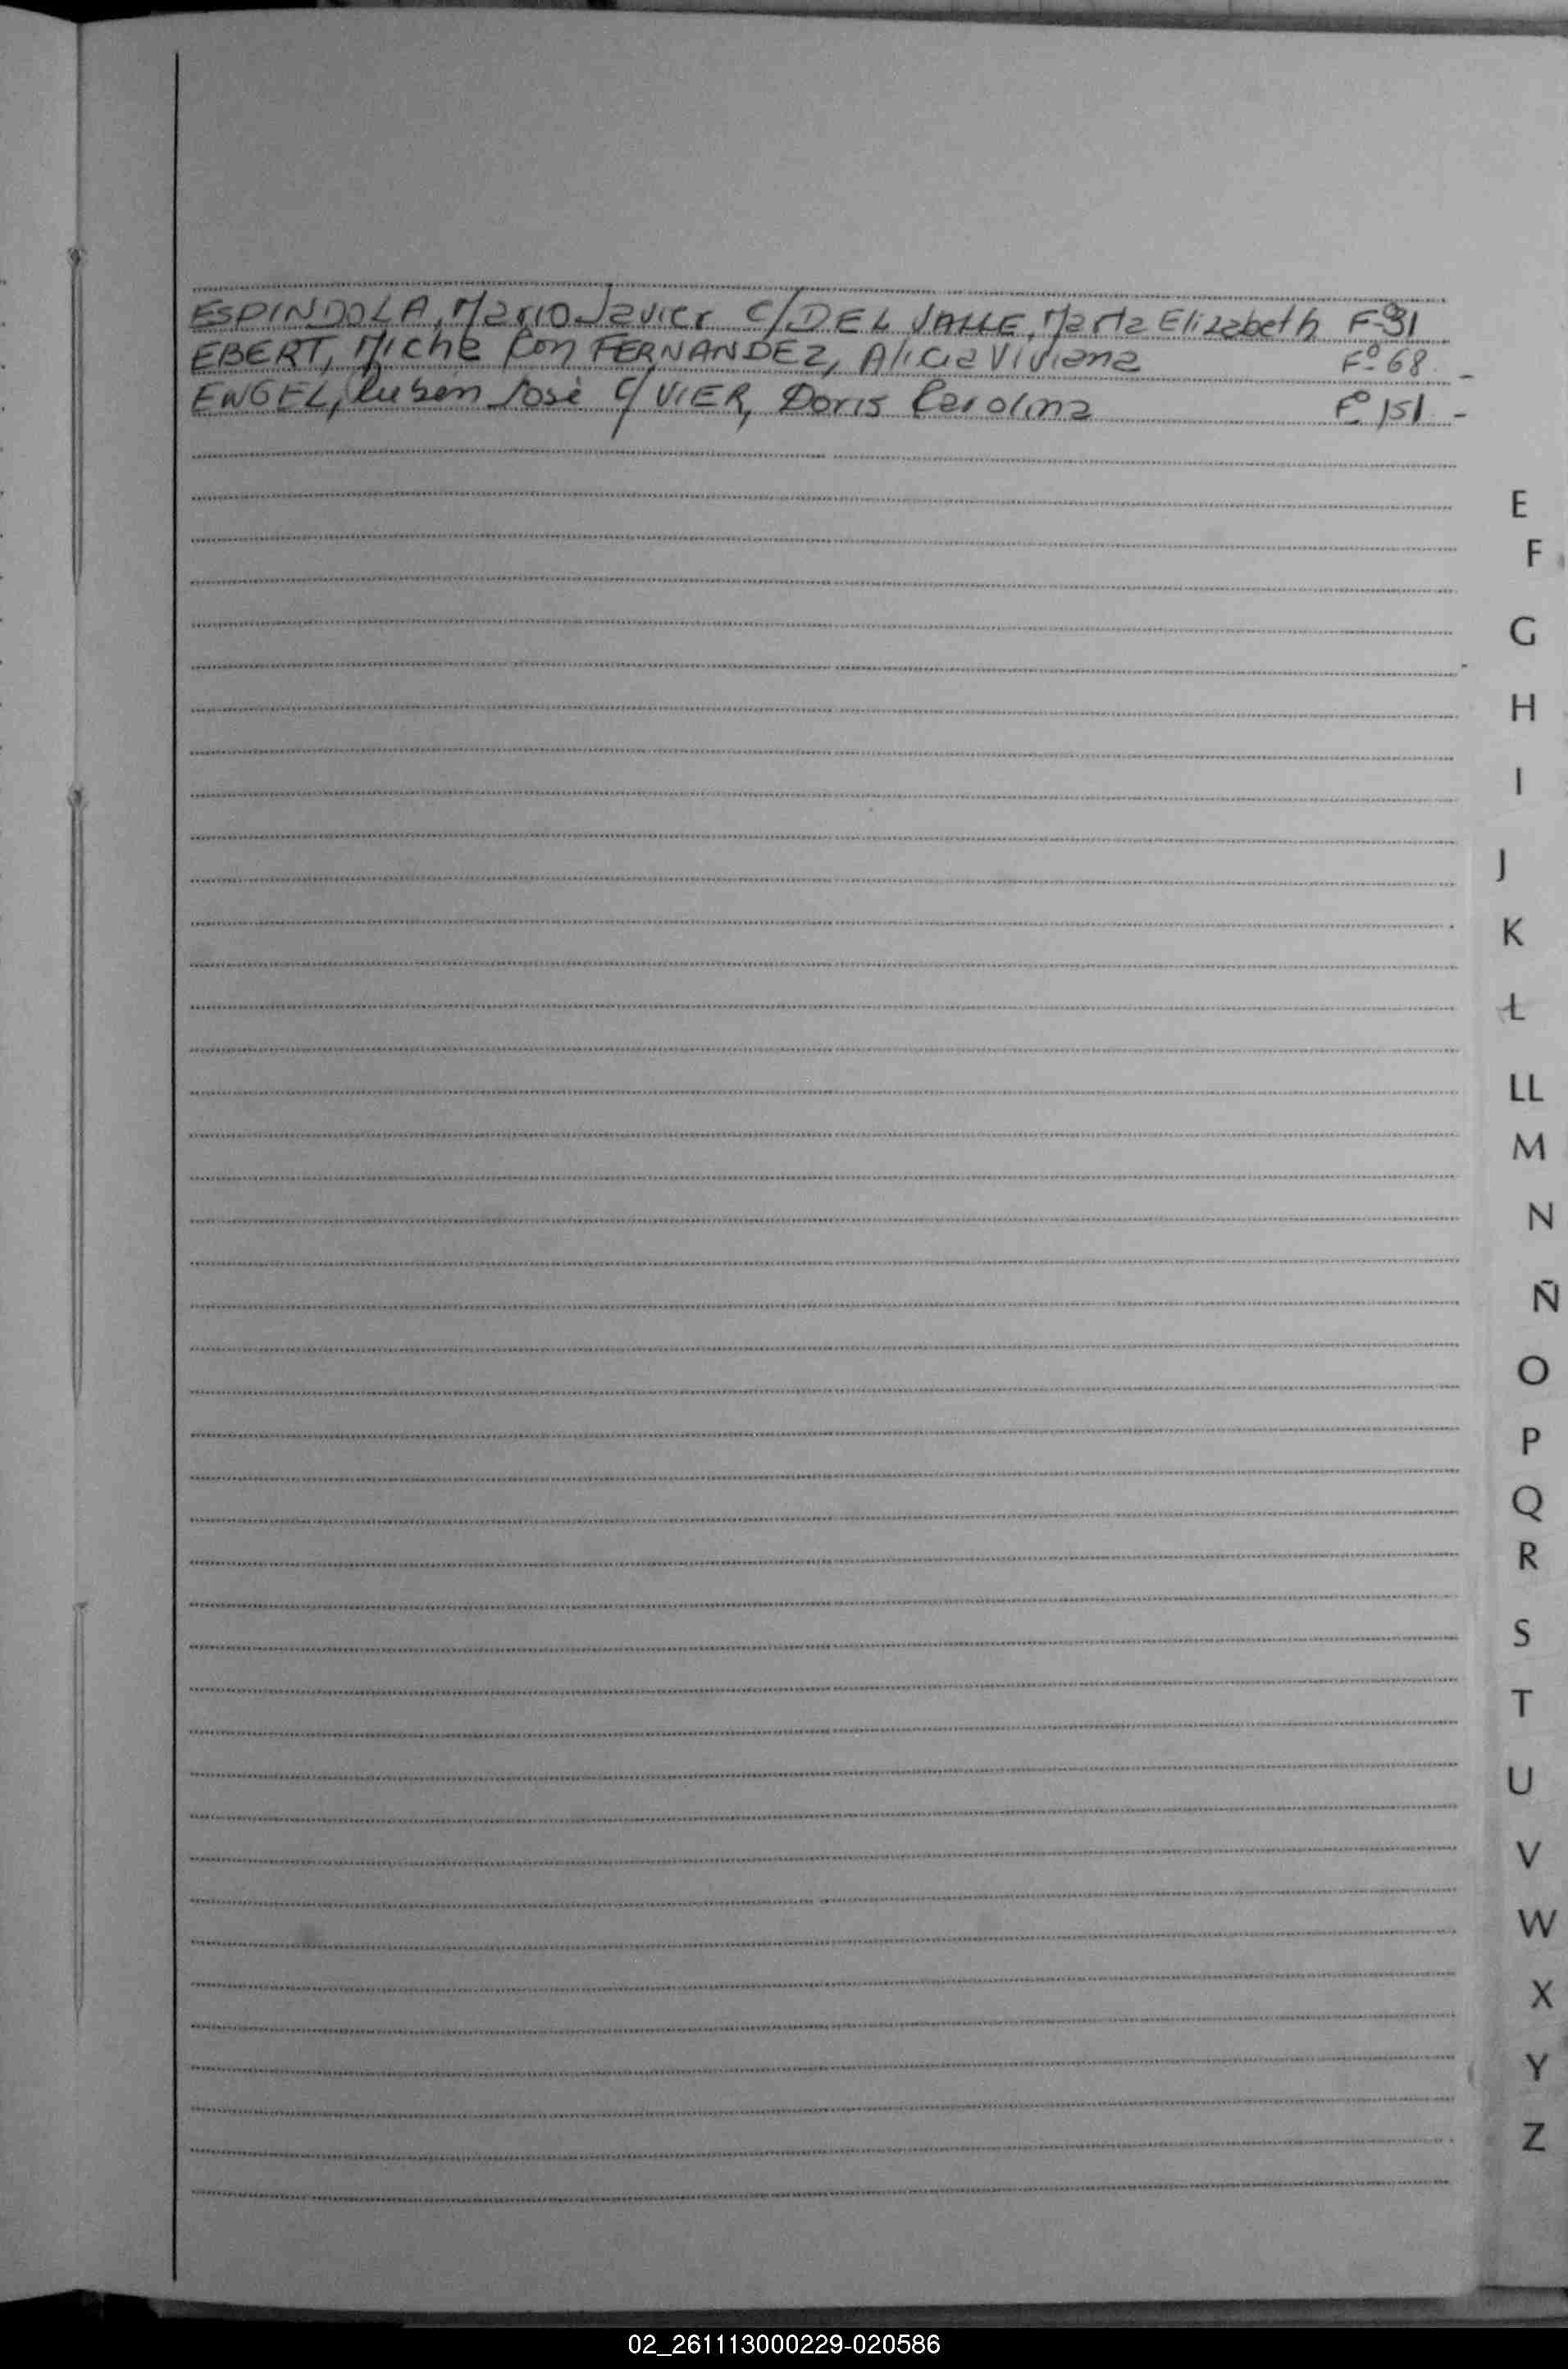 ESPINDOLA, Mario Javier C/DEL VALLE, Marta Elizabeth Fº 31
EBERT, Miche Con FERNANDEZ, Alicia Viviana Fº 68 -
ENGEL, Rubén José C/ VIER, Doris Carolina Fº 151 -
E
F
G
H
I
J
K
L
LL
M
N
Ñ
O
P
Q
R
S
T
U
V
W
X
Y
Z
02_261113000229-020586